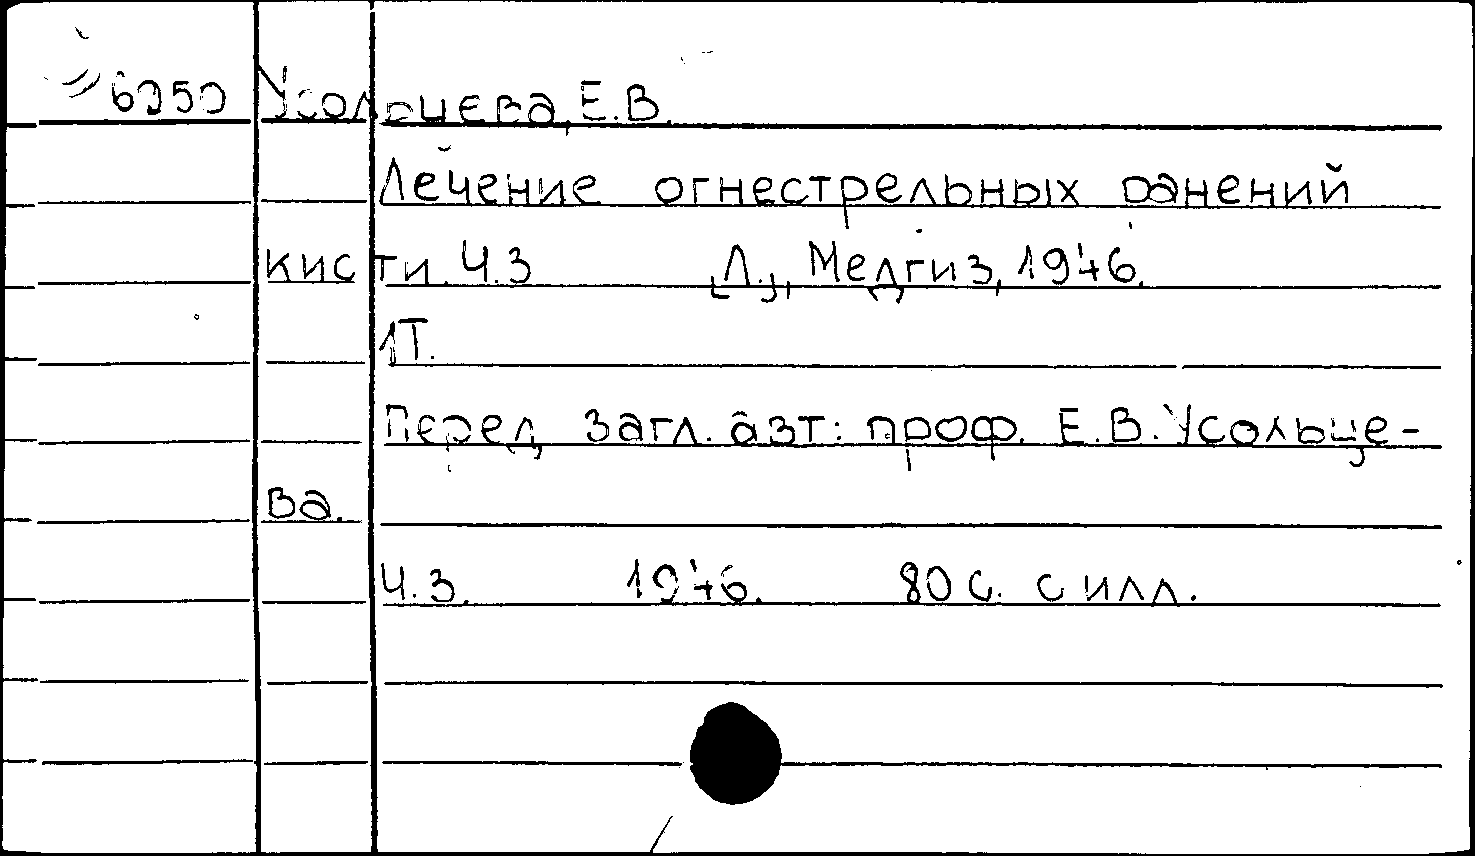 6050 Усольцева, Е.В.
Лечение огнестрельных ранений
кисти. Ч.3 [Л.], Медгиз, 1946.
1т.
Перед загл. авт: проф. Е.В. Усольце-
ва.
Ч.3. 1946. 80 с. с илл.